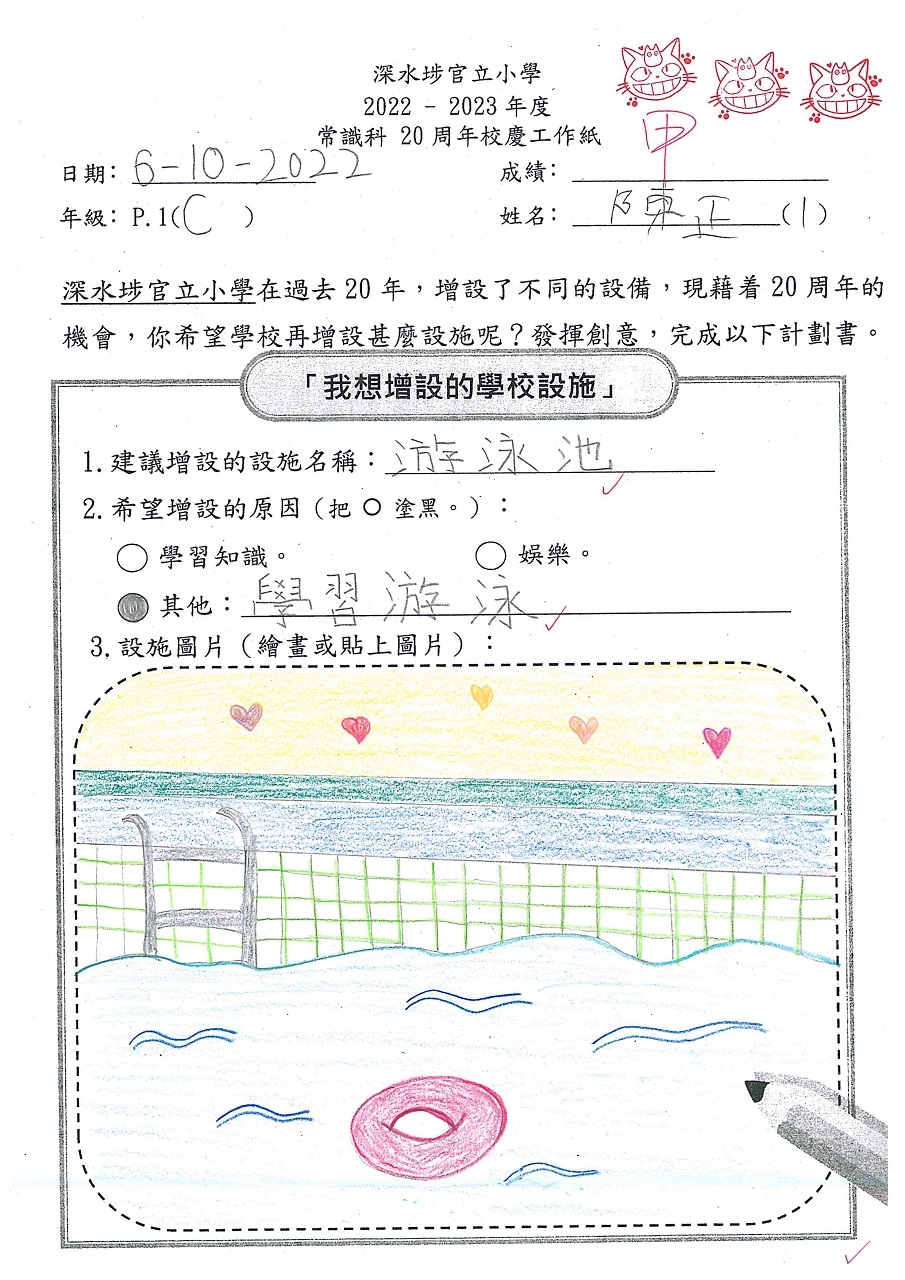 深水埗官立小學
2022 - 2023 年度
常識科 20 周年校慶工作紙
日期：6-10-2022 成績：甲
年級：P.1(C) 姓名：陳正(1)
深水埗官立小學在過去 20 年，增設了不同的設備，現藉着 20 周年的
機會，你希望學校再增設甚麼設施呢？發揮創意，完成以下計劃書。
「我想增設的學校設施」
1.建議增設的設施名稱：游泳池
2.希望增設的原因（把 ○ 塗黑。）：
○ 學習知識。 ○ 娛樂。
● 其他：學習游泳
3.設施圖片（繪畫或貼上圖片）：